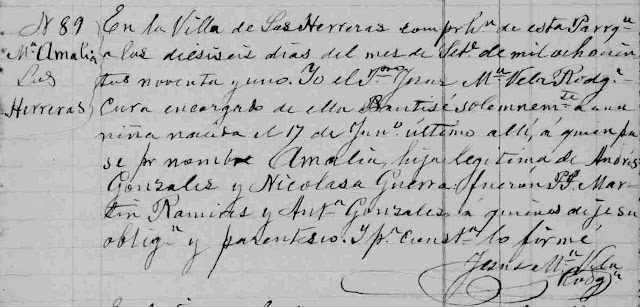 N 89
Mª Amalia
Las
Herreras
En la Villa de Las Herreras comprhⁿ de esta Parrqª
a los dieciseis dias del mes de Setᵉ de mil ochocien
tos noventa y uno. Yo el Jesus Mª Vela Rodgz
Cura encargado de ella Bautisé solemnemᵗᵉ a una
niña nacida el 17 de Junº último alli, á quien pu
se pr nombre Amalia, hija legitima de Andrés
Gonzales y Nicolasa Guerra fueron PP. Mar
tin Ramires y Antª Gonzales, á quienes dije su
obligⁿ y parentesco. Y pª constª lo firmé
Jesus Mª Vela
Rodgz